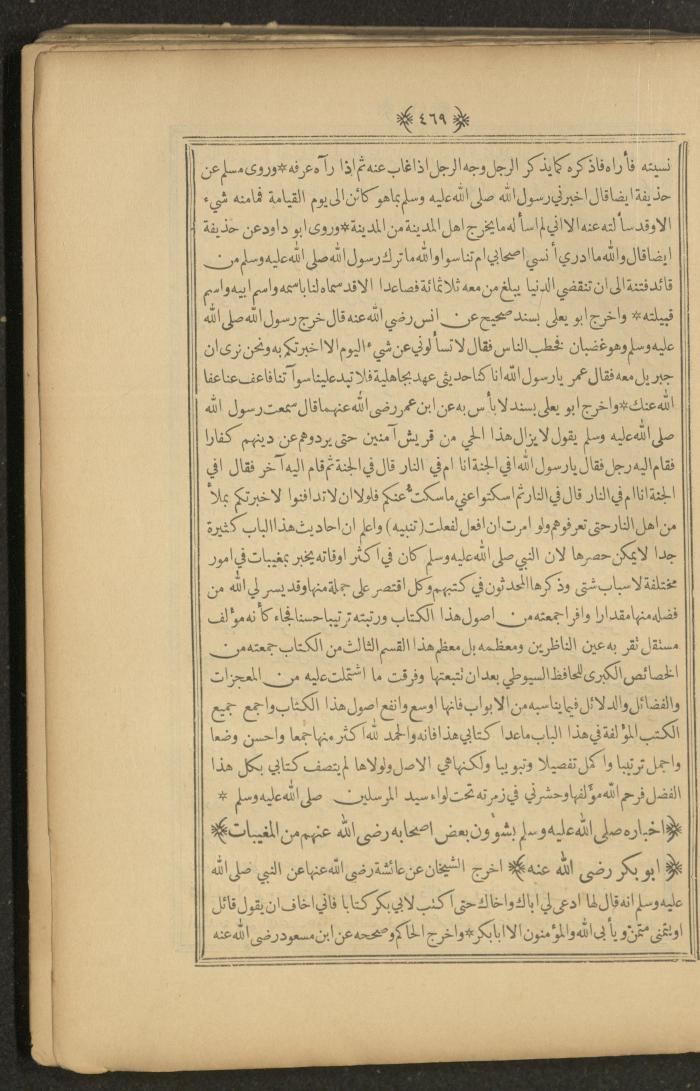 ﴿ ٤٦٩ ﴾
نسيته فأراه فاذكره كما يذكر الرجل وجه الرجل اذا غاب عنه ثم إذا رآه عرفه * وروى مسلم عن
حذيفة ايضا قال اخبرني رسول الله صلى الله عليه وسلم بما هو كائن الى يوم القيامة فما منه شيء
الا وقد سألته عنه الا اني لم اسأله ما يخرج اهل المدينة من المدينة * وروى ابو داود عن حذيفة
ايضا قال والله ما ادري أنسي اصحابي ام تناسوا والله ما ترك رسول الله صلى الله عليه وسلم من
قائد فتنة الى ان تنقضي الدنيا يبلغ من معه ثلاثمائة فصاعدا الا قد سماه لنا باسمه واسم ابيه واسم
قبيلته * واخرج ابو يعلى بسند صحيح عن انس رضي الله عنه قال خرج رسول الله صلى الله
عليه وسلم وهو غضبان فخطب الناس فقال لا تسألوني عن شيء اليوم الا اخبرتكم به ونحن نرى ان
جبريل معه فقال عمر يا رسول الله انا كنا حديثي عهد بجاهلية فلا تبد علينا سوآتنا فاعف عنا عفا
الله عنك * واخرج ابو يعلى بسند لا بأس به عن ابن عمر رضى الله عنهما قال سمعت رسول الله
صلى الله عليه وسلم يقول لا يزال هذا الحي من قريش آمنين حتى يردوهم عن دينهم كفارا
فقام اليه رجل فقال يا رسول الله افي الجنة انا ام في النار قال في الجنة ثم قام اليه آخر فقال افي
الجنة انا ام في النار قال في النار ثم اسكتوا عني ما سكت عنكم فلولا ان لا تدافنوا لاخبرتكم بملأ
من اهل النار حتى تعرفوهم ولو امرت ان افعل لفعلت ( تنبيه ) واعلم ان احاديث هذا الباب كثيرة
جدا لا يمكن حصرها لان النبي صلى الله عليه وسلم كان في اكثر اوقاته يخبر بمغيبات في امور
مختلفة لاسباب شتى وذكرها المحدثون في كتبهم وكل اقتصر على جملة منها وقد يسر لي الله من
فضله منها مقدارا وافرا جمعته من اصول هذا الكتاب ورتبته ترتيبا حسنا فجاء كأنه مؤلف
مستقل تقر به عين الناظرين ومعظمه بل معظم هذا القسم الثالث من الكتاب جمعته من
الخصائص الكبرى للحافظ السيوطي بعد ان تتبعتها وفرقت ما اشتملت عليه من المعجزات
والفضائل والدلائل فيما يناسبه من الابواب فانها اوسع وانفع اصول هذا الكتاب واجمع جميع
الكتب المؤلفة في هذا الباب ما عدا كتابي هذا فانه والحمد لله اكثر منها جمعا واحسن وضعا
واجمل ترتيبا واكمل تفصيلا وتبويبا ولكنها هي الاصل ولولاها لم يتصف كتابي بكل هذا
الفضل فرحم الله مؤلفها وحشرني في زمرته تحت لواء سيد المرسلين صلى الله عليه وسلم *
﴿ اخباره صلى الله عليه وسلم بشؤون بعض اصحابه رضى الله عنهم من المغيبات ﴾
﴿ ابو بكر رضى الله عنه ﴾ اخرج الشيخان عن عائشة رضى الله عنها عن النبي صلى الله
عليه وسلم انه قال لها ادعى لي اباك واخاك حتى اكتب لابي بكر كتابا فاني اخاف ان يقول قائل
او يتمنى متمن ويأبى الله والمؤمنون الا ابا بكر * واخرج الحاكم وصححه عن ابن مسعود رضى الله عنه